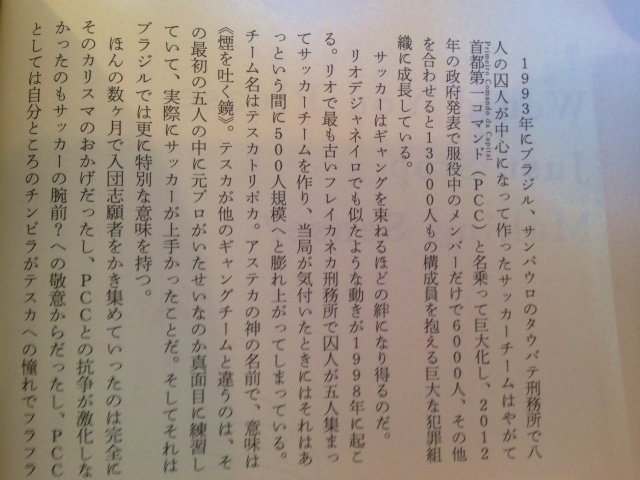 1993年にブラジル、サンパウロのタウバテ刑務所で八
人の囚人が中心になって作ったサッカーチームはやがて
首都第一コマンド（PCC）と名乗って巨大化し、2012
Primeiro Comando da Capital
年の政府発表で服役中のメンバーだけで6000人、その他
を合わせると13000人もの構成員を抱える巨大な犯罪組
織に成長している。
サッカーはギャングを束ねるほどの絆になり得るのだ。
リオデジャネイロでも似たような動きが1998年に起こ
る。リオで最も古いフレイカネカ刑務所で囚人が五人集まっ
てサッカーチームを作り、当局が気付いたときにはそれはあ
っという間に500人規模へと膨れ上がってしまっている。
チーム名はテスカトリポカ。アステカの神の名前で、意味は
《煙を吐く鏡》。テスカが他のギャングチームと違うのは、そ
の最初の五人の中に元プロがいたせいなのか真面目に練習し
ていて、実際にサッカーが上手かったことだ。そしてそれは
ブラジルでは更に特別な意味を持つ。
ほんの数ヶ月で入団志願者をかき集めていったのは完全に
そのカリスマのおかげだったし、PCCとの抗争が激化しな
かったのもサッカーの腕前？への敬意からだったし、PCC
としては自分ところのチンピラがテスカへの憧れでフラフラ